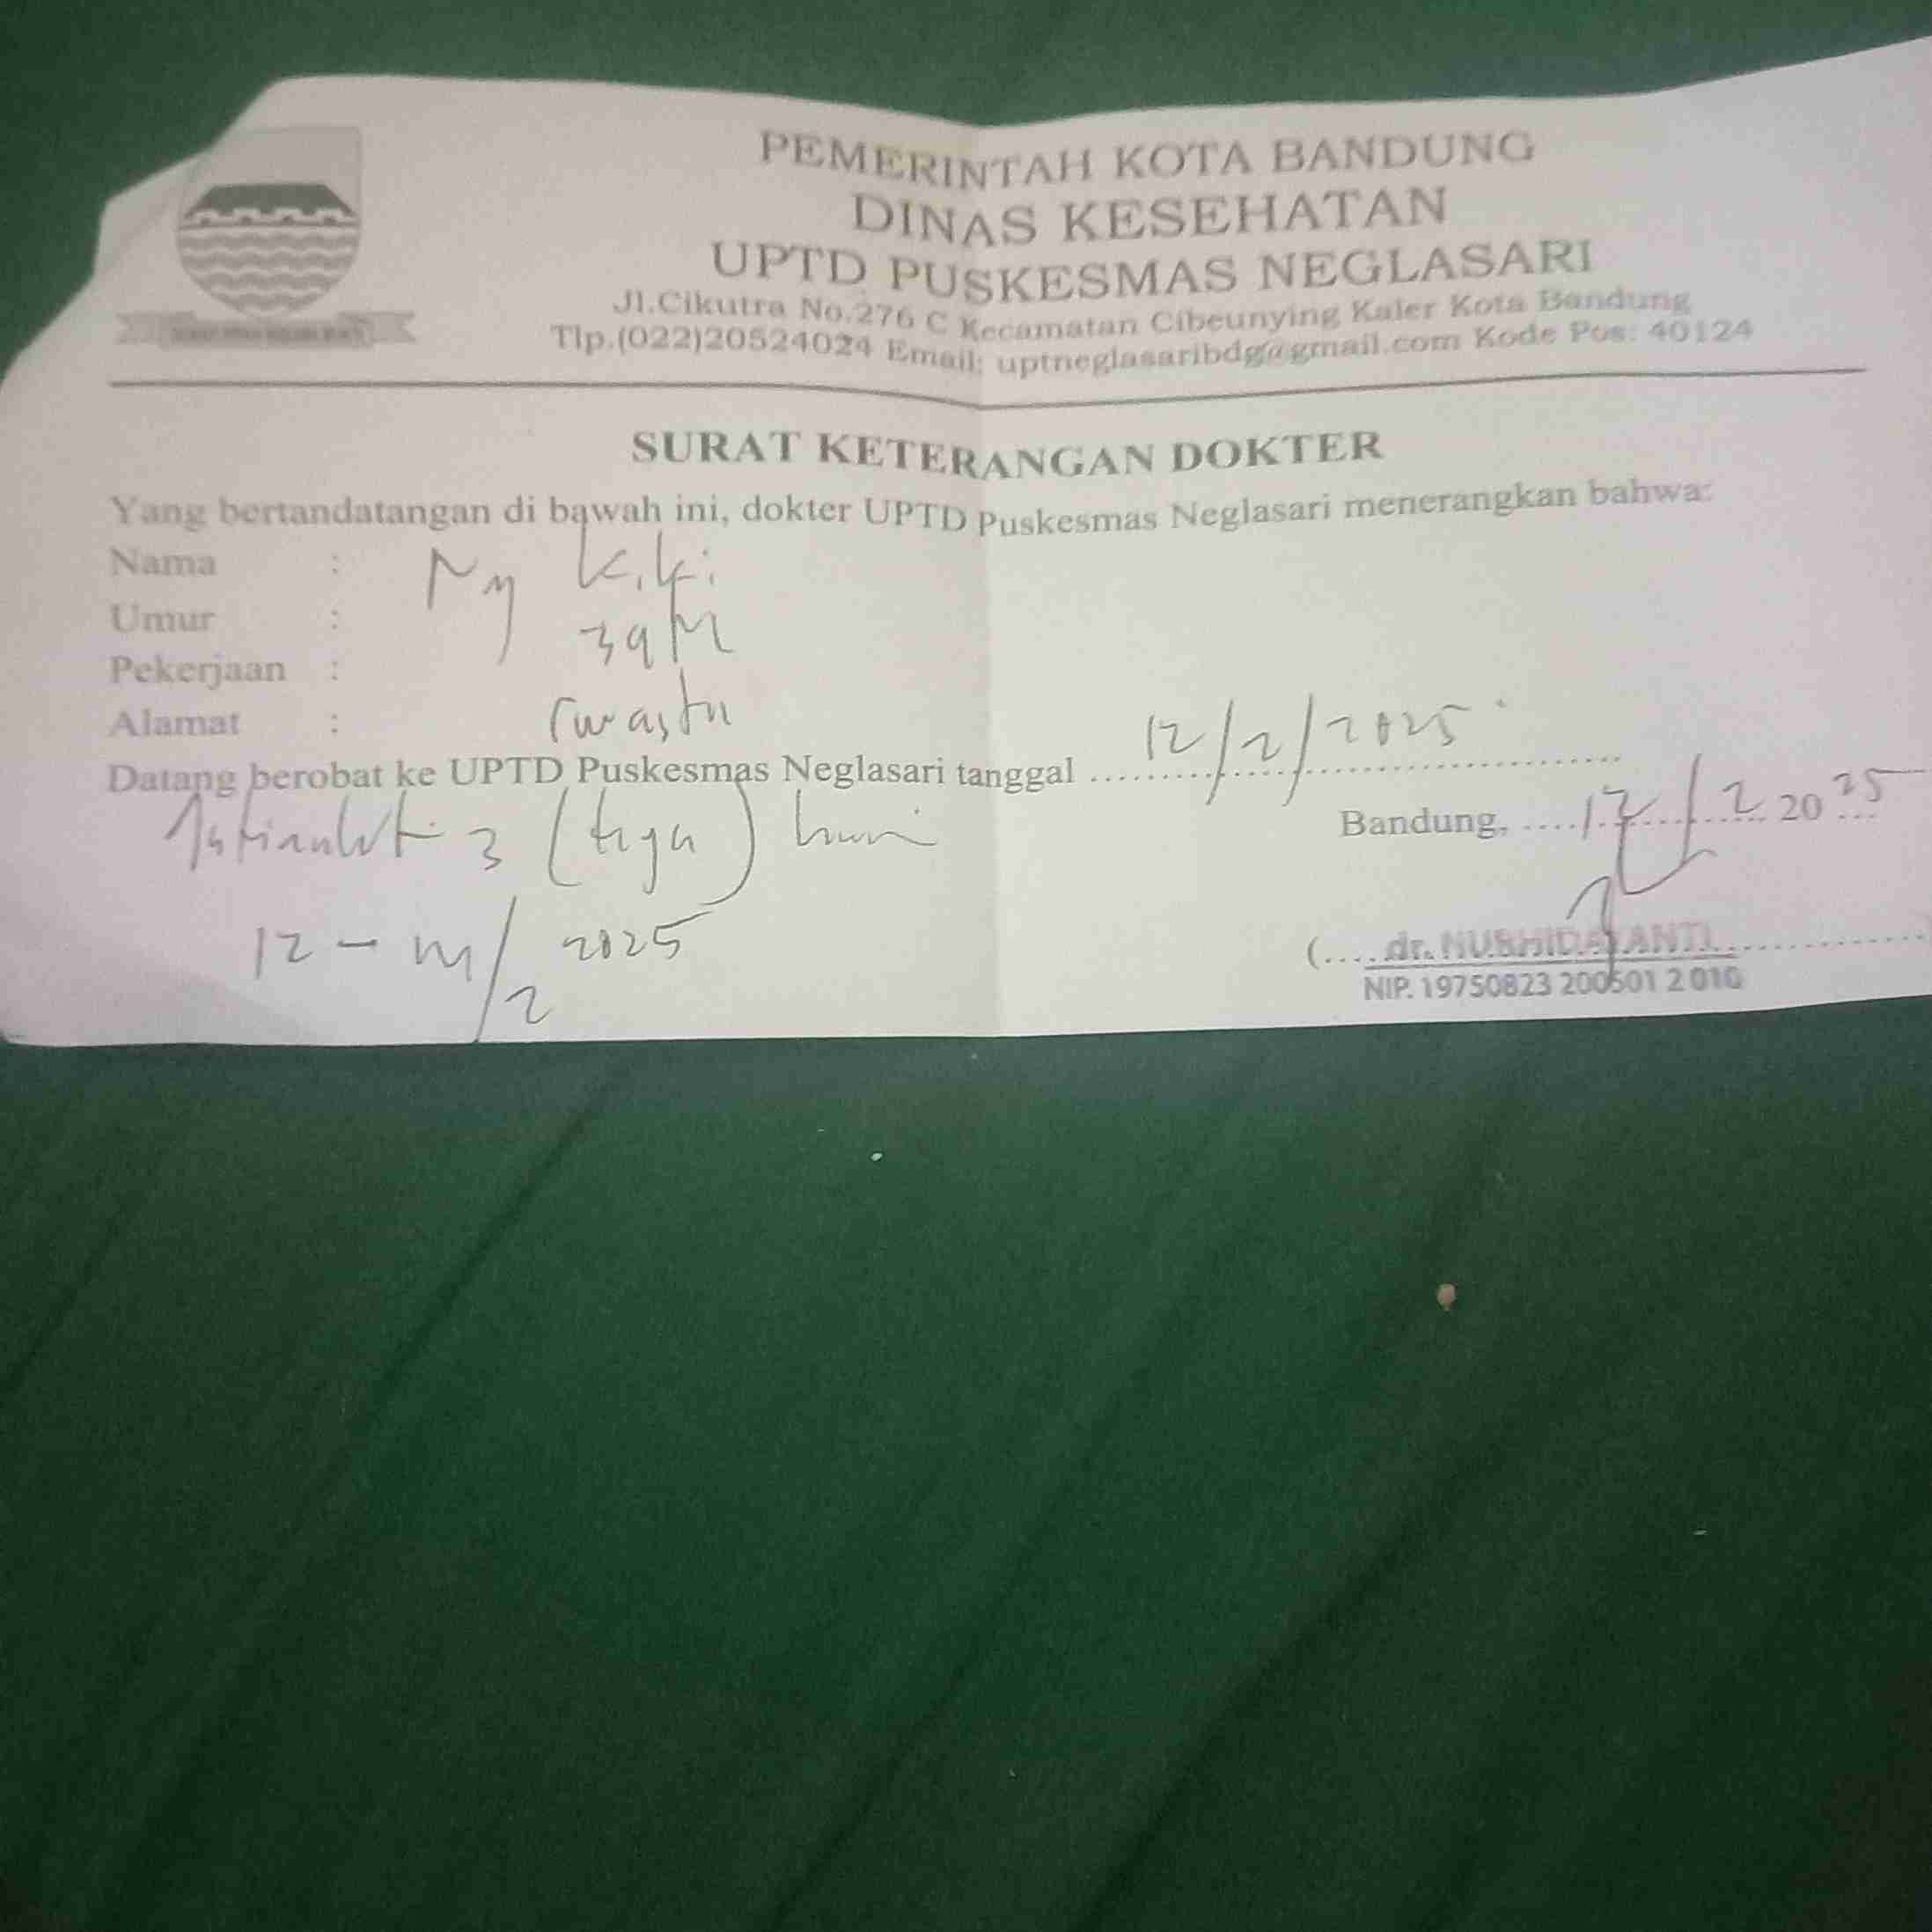 PEMERINTAH KOTA BANDUNG
DINAS KESEHATAN
UPTD PUSKESMAS NEGLASARI
Jl.Cikutra No.276 C Kecamatan Cibeunying Kaler Kota Bandung
Tlp.(022)20524024 Email: uptneglasaribdg@gmail.com Kode Pos: 40124
SURAT KETERANGAN DOKTER
Yang bertandatangan di bawah ini, dokter UPTD Puskesmas Neglasari menerangkan bahwa:
Nama : Ny Kiki
Umur : 39
Pekerjaan :
Alamat : swasta
Datang berobat ke UPTD Puskesmas Neglasari tanggal 12/2/2025
3 (tiga) hari
Bandung, 12/2 2025
12 - /2 2025
(.... dr. NURHIDAYANTI
NIP. 19750823 200501 2 010